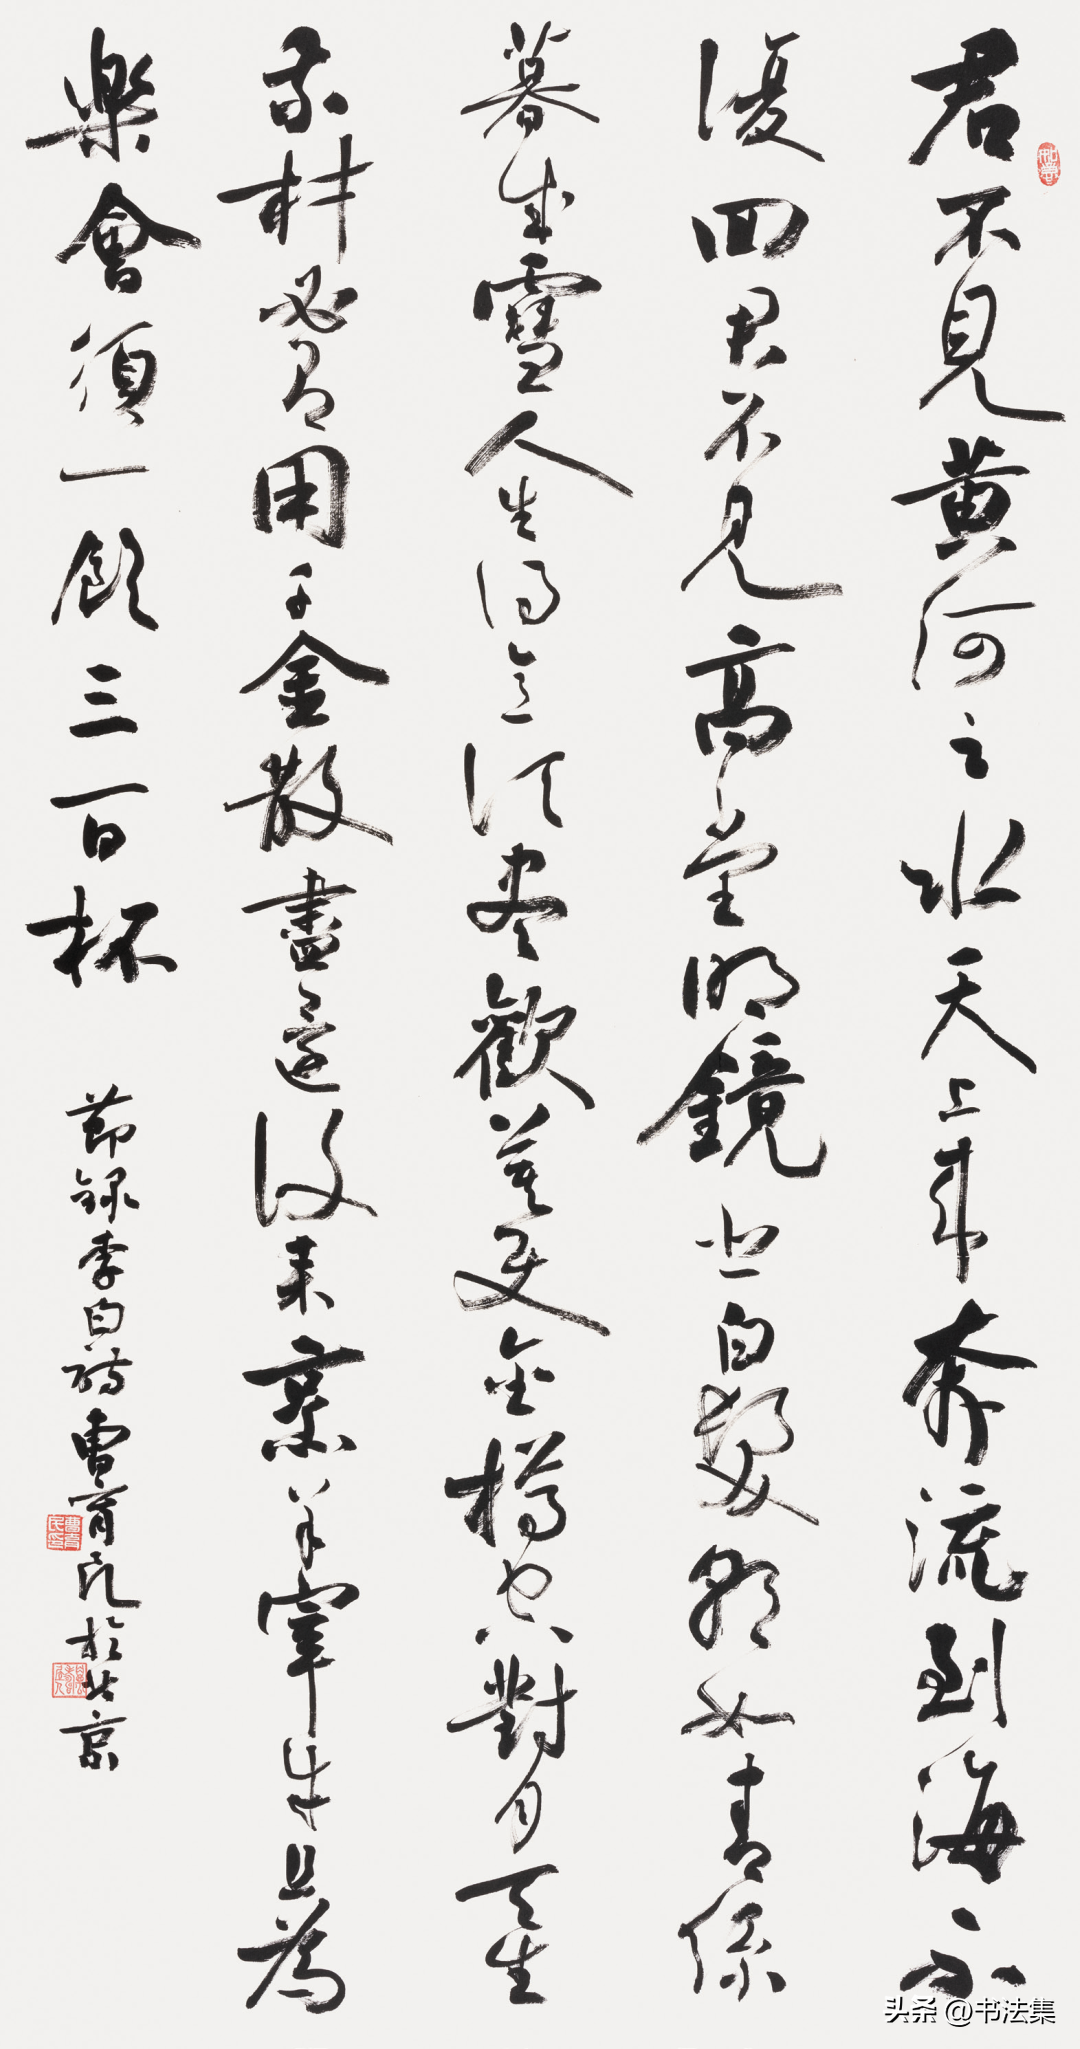 君不見黃河之水天上來奔流到海不
復回君不見高堂明鏡悲白髮朝如青絲
暮成雪人生得意須盡歡莫使金樽空對月天生
我材必有用千金散盡還復來烹羊宰牛且為
樂會須一飲三百杯
節錄李白詩曹育民於北京
曹育民印
头条 @书法集